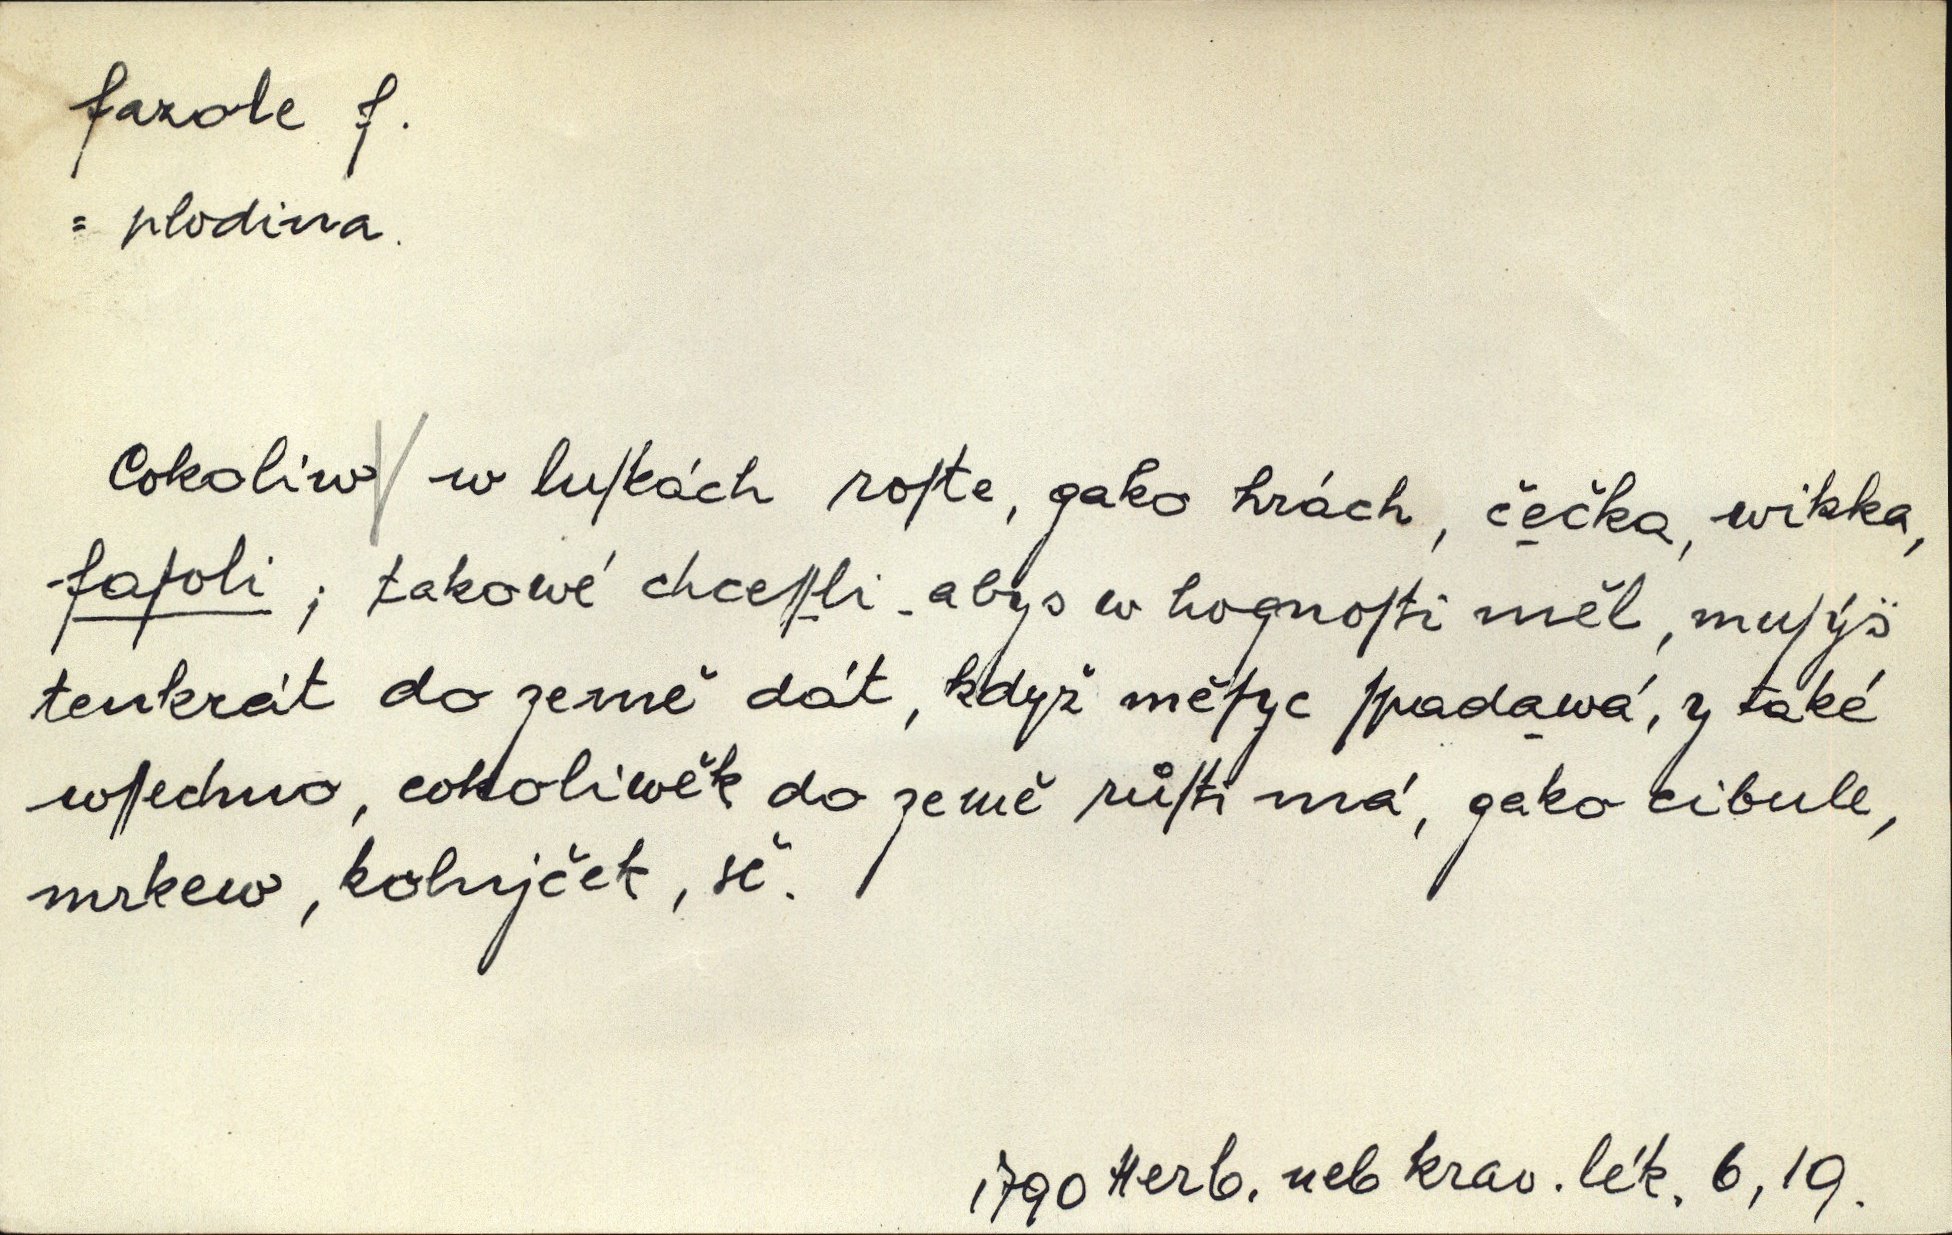 fazole f.
= plodina.
Cokoliw w luſkách roſte, gako hrách, čečka, wikka,
faſoli ; takowé chceſſli - abys w hognoſti měl, muſýš
tenkrát do země dát, když měſyc ſpadawá, y také
wſſechno, cokoliwěk do země růſti má, gako cibule,
mrkew, kolnjček, sč.
1790 Herb. neb krav. lék. 6, 19.